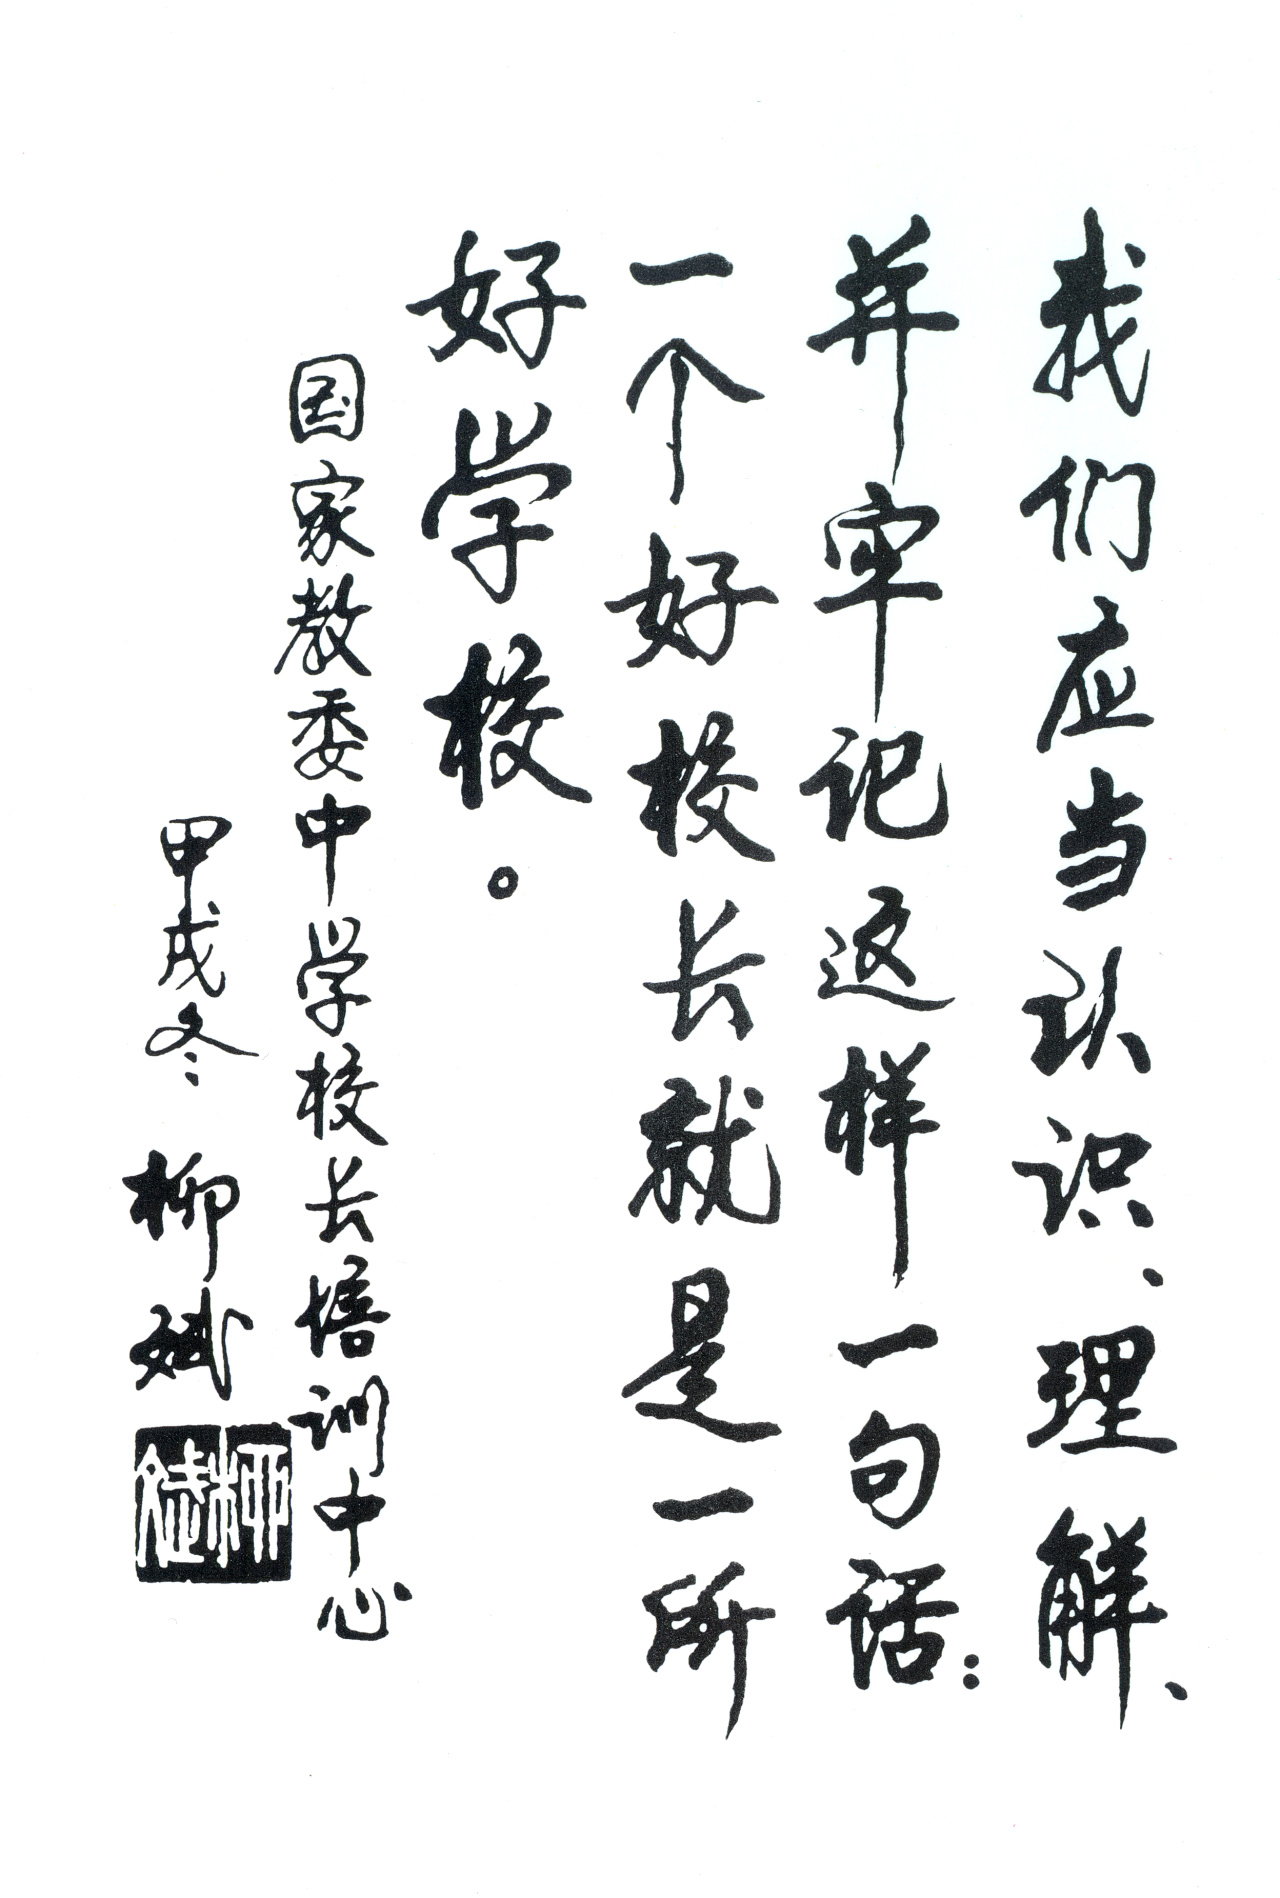 我们应当认识、理解、
并牢记这样一句话：
一个好校长就是一所
好学校。
国家教委中学校长培训中心
甲戌冬 柳斌
柳斌